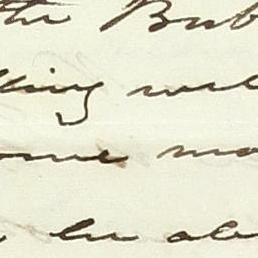 the Bub
lling well
ome mo
be ab